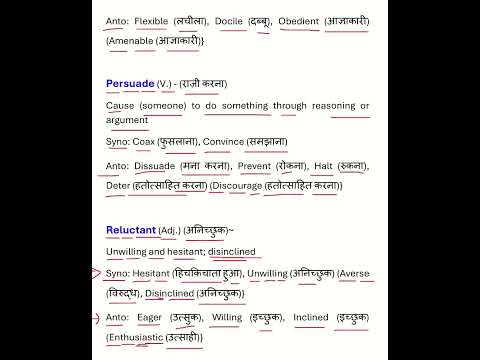 Anto: Flexible (लचीला), Docile (दब्बू), Obedient (आज्ञाकारी)
(Amenable (आज्ञाकारी)}
Persuade (V.) - (राज़ी करना)
Cause (someone) to do something through reasoning or
argument
Syno: Coax (फुसलाना), Convince (समझाना)
Anto: Dissuade (मना करना), Prevent (रोकना), Halt (रुकना),
Deter (हतोत्साहित करना) (Discourage (हतोत्साहित करना)}
Reluctant (Adj.) (अनिच्छुक)~
Unwilling and hesitant; disinclined
Syno: Hesitant (हिचकिचाता हुआ), Unwilling (अनिच्छुक) (Averse
(विरुद्ध), Disinclined (अनिच्छुक)}
Anto: Eager (उत्सुक), Willing (इच्छुक), Inclined (इच्छुक)
(Enthusiastic (उत्साही)}